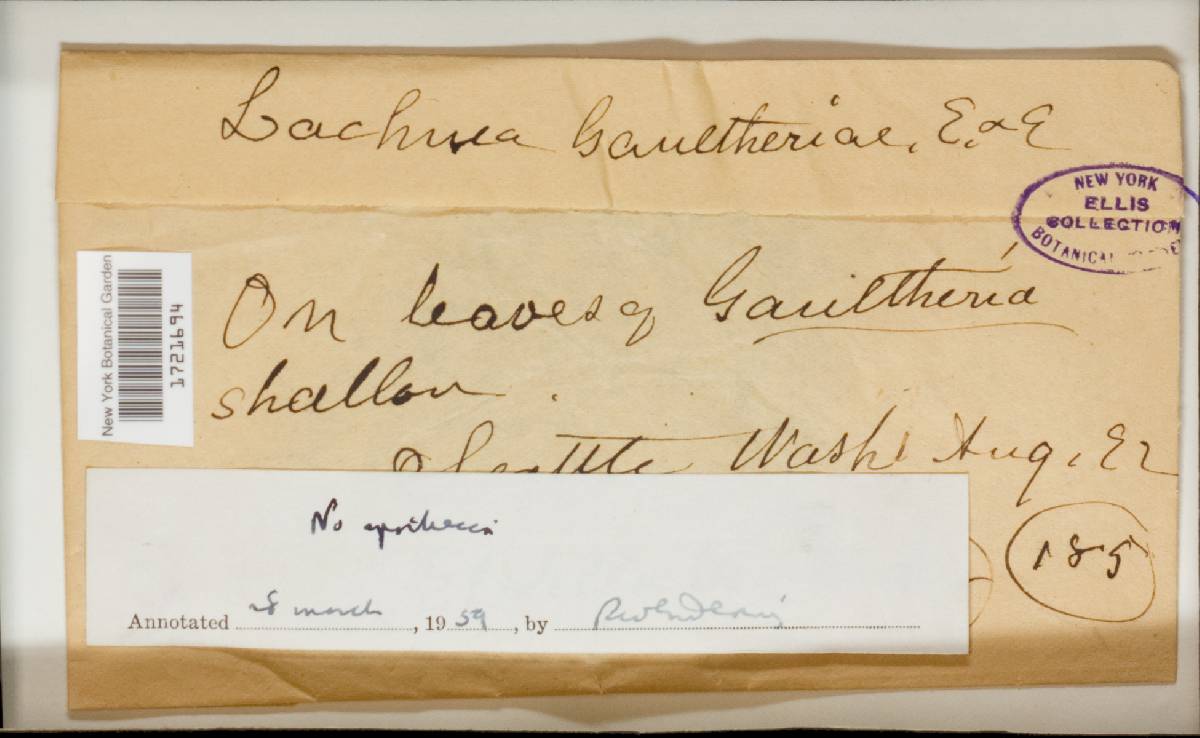 Lachnea Gaultheriae, E. & E
NEW YORK
ELLIS
COLLECTION
BOTANICAL
On leaves of Gaultheria
shallon.
Seattle Wash Aug, 92
New York Botanical Garden
1721694
No apothecia
185
Annotated 28 march, 1959, by